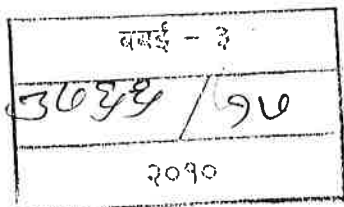 बबई - ३
३७५५ / १७
२०१०